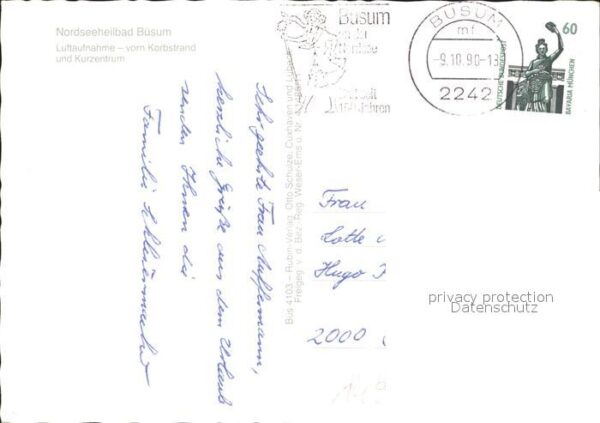 Nordseeheilbad Büsum
Luftaufnahme – vorn Korbstrand
und Kurzentrum
Sehr geehrte Frau Auffermann,
herzliche Grüße aus dem Urlaub
senden Ihnen die
Familie
Bus 4103 – Rubin-Verlag, Otto Schulze, Cuxhaven und Lübeck
Freigeg. v. d. Bez. Reg. Weser-Ems u. Nr.
Büsum
BÜSUM
mf
-9.10.90-13
2242
60
DEUTSCHE BUNDESPOST
BAVARIA MÜNCHEN
Frau
Lotte
Hugo
2000
privacy protection
Datenschutz